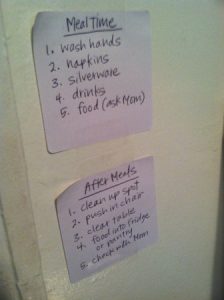 Meal Time
1. wash hands
2. napkins
3. silverware
4. drinks
5. food (ask Mom)
After Meals
1. clean up spot
2. push in chair
3. clear table
4. food into fridge
or pantry
5. check with Mom